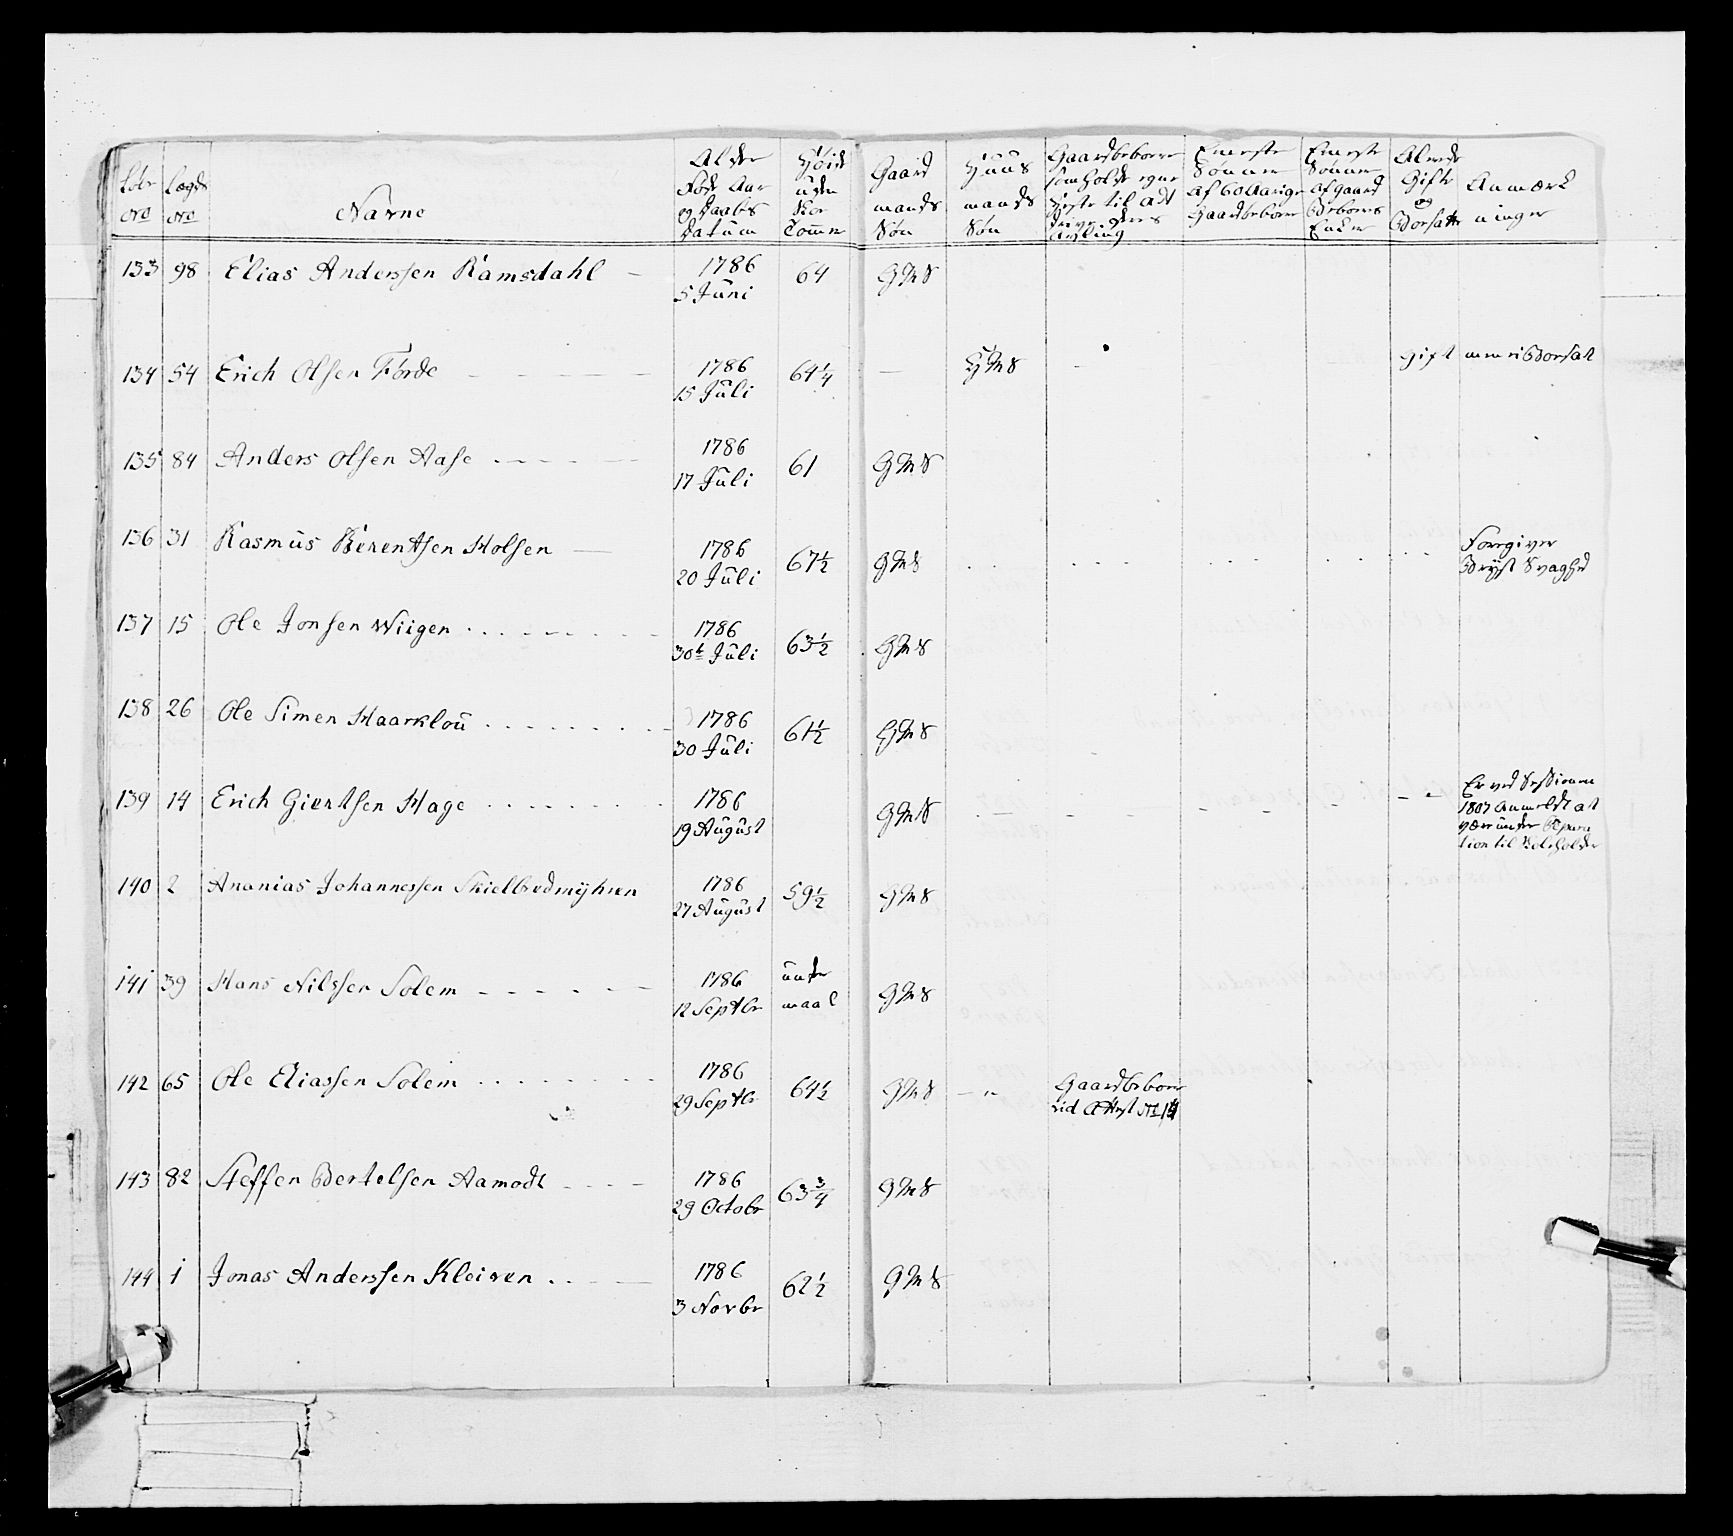 Løbe No
Lægds No
Navne
Alder Føde Aar og Daabs Datum
Høide uden Skoe Tommer
Gaard mands Søn
Huus mands Søn
Gaardbeboere som holde egne
Eeneste Sønner af 60 Aarige Gaardbeboere
Eeneste Sønner af Gaard Beboeres Enker
Alerede Gifte og Borsatte
Anmærkninger
133 98 Elias Anderssen Ramsdahl — 1786 5 Juni 64 GMS
134 54 Erich Olsen Förde 1786 15 Juli 64 1/4 — HMS Gift men ei Borsat
135 84 Anders Olsen Aase 1786 17 Juli 61 GMS
136 31 Rasmus Berentsen Holsen — 1786 20 Juli 67 1/2 GMS Foregiver Bryst Svaghed
137 15 Ole Jonsen Wiigen 1786 30te Juli 63 1/2 GMS
138 26 Ole Simen Haarklou 1786 30 Juli 61 1/2 GMS
139 14 Erich Giertsen Hage 1786 19 August GMS Er ved Sessionen 1807 Anmeldt at være under
140 2 Ananias Johannessen Skielbredmyhren 1786 27 August 59 1/2 GMS
141 39 Hans Nilssen Solem 1786 12 Septbr under maal GMS
142 65 Ole Eliassen Solem 1786 29 Septbr 64 1/2 GMS — " Gaardbeboer vid Attest No
143 82 Steffen Bertelsen Aamodt 1786 29 Octobr 63 3/4 GMS
144 1 Jonas Anderssen Kleiven 1786 3 Novbr 62 1/2 GMS